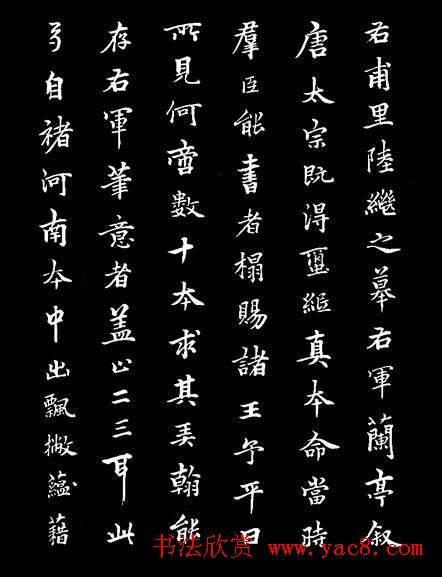 右甫里陸繼之摹右軍蘭亭叙
唐太宗既得璽紙真本命當時
羣臣能書者榻賜諸王予平日
所見何啻數十本求其弄翰能
存右軍筆意者盖止二三耳此
乃自褚河南本中出飄撇蘊藉
书法欣赏 www.yac8.com